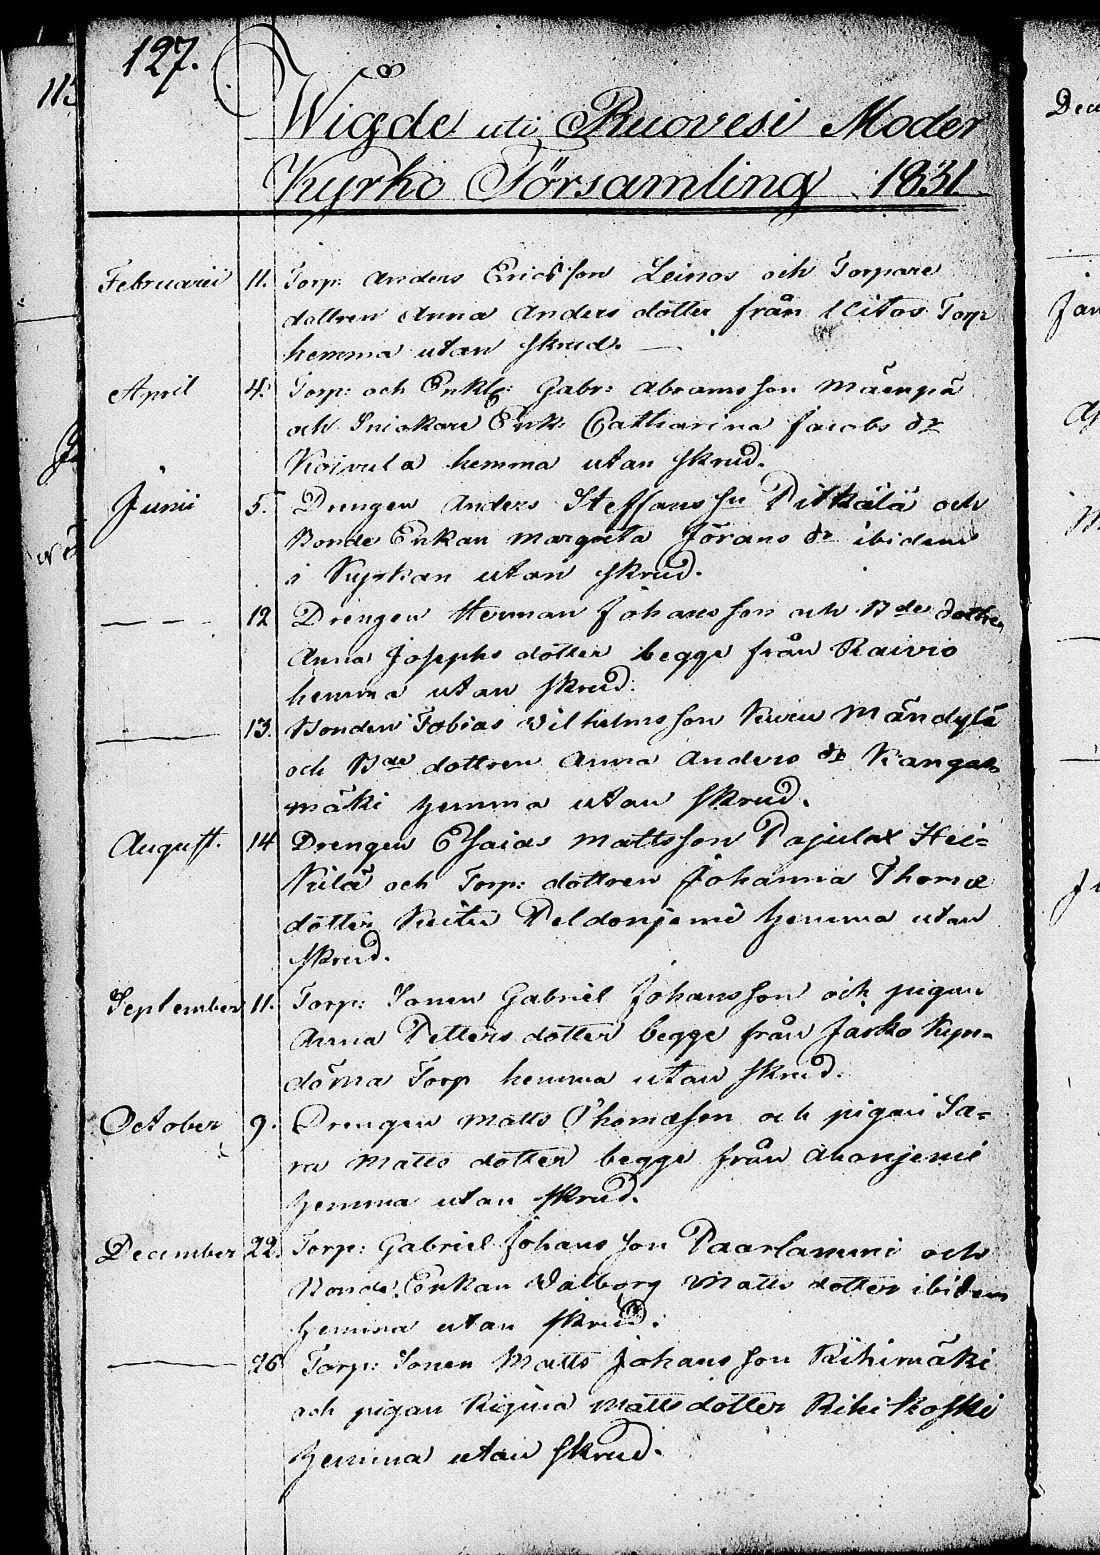 127.
Wigde uti Ruovesi Moder
Kyrko Församling 1831.
Februarii 11. Torp: Anders Ericsson Leinos och Torpare
dottren Anna Anders dotter från Torp
hemma utan skrud.
April 4. Torp: och Enkl: Gabr: Abramsson Mäenpä
och Sniokare Enk: Catharina Jacobs dr
Koivula hemma utan skrud.
Junii 5. Drengen Anders Steffanss: Pitkälä och
Bonde Enkan Margreta Jörans dr ibidem
i Kyrkan utan skrud.
— — 12 Drengen Herman Johansson och Bde dottren
Anna Josephs dotter begge från Raivio
hemma utan skrud.
— 13. Bonden Tobias Vilhelmsson Kuru Mändylä
och Bde dottren Anna Anders dr Kangas-
mäki hemma utan skrud.
August. 14 Drengen Esaias Mattsson Pajulax Hei=
kilä och Torp: dottren Johanna Thomæ
dotter Keitu Peldonjemi hemma utan
skrud.
September 11. Torp: Sonen Gabriel Johansson och pigan
Anna Petters dotter begge från Jäsko Kyn=
döma Torp hemma utan skrud.
October 9. Drengen Matts Thomæson och pigan Sa=
ra Matts dotter begge från Ahonjemi
hemma utan skrud.
December 22. Torp: Gabriel Johansson Paarlammi och
Bonde Enkan Valborg Matts dotter ibidem
hemma utan skrud.
— 26 Torp: Sonen Matts Johansson Rihimäki
och pigan Regina Matts dotter Rihikoski
hemma utan skrud.